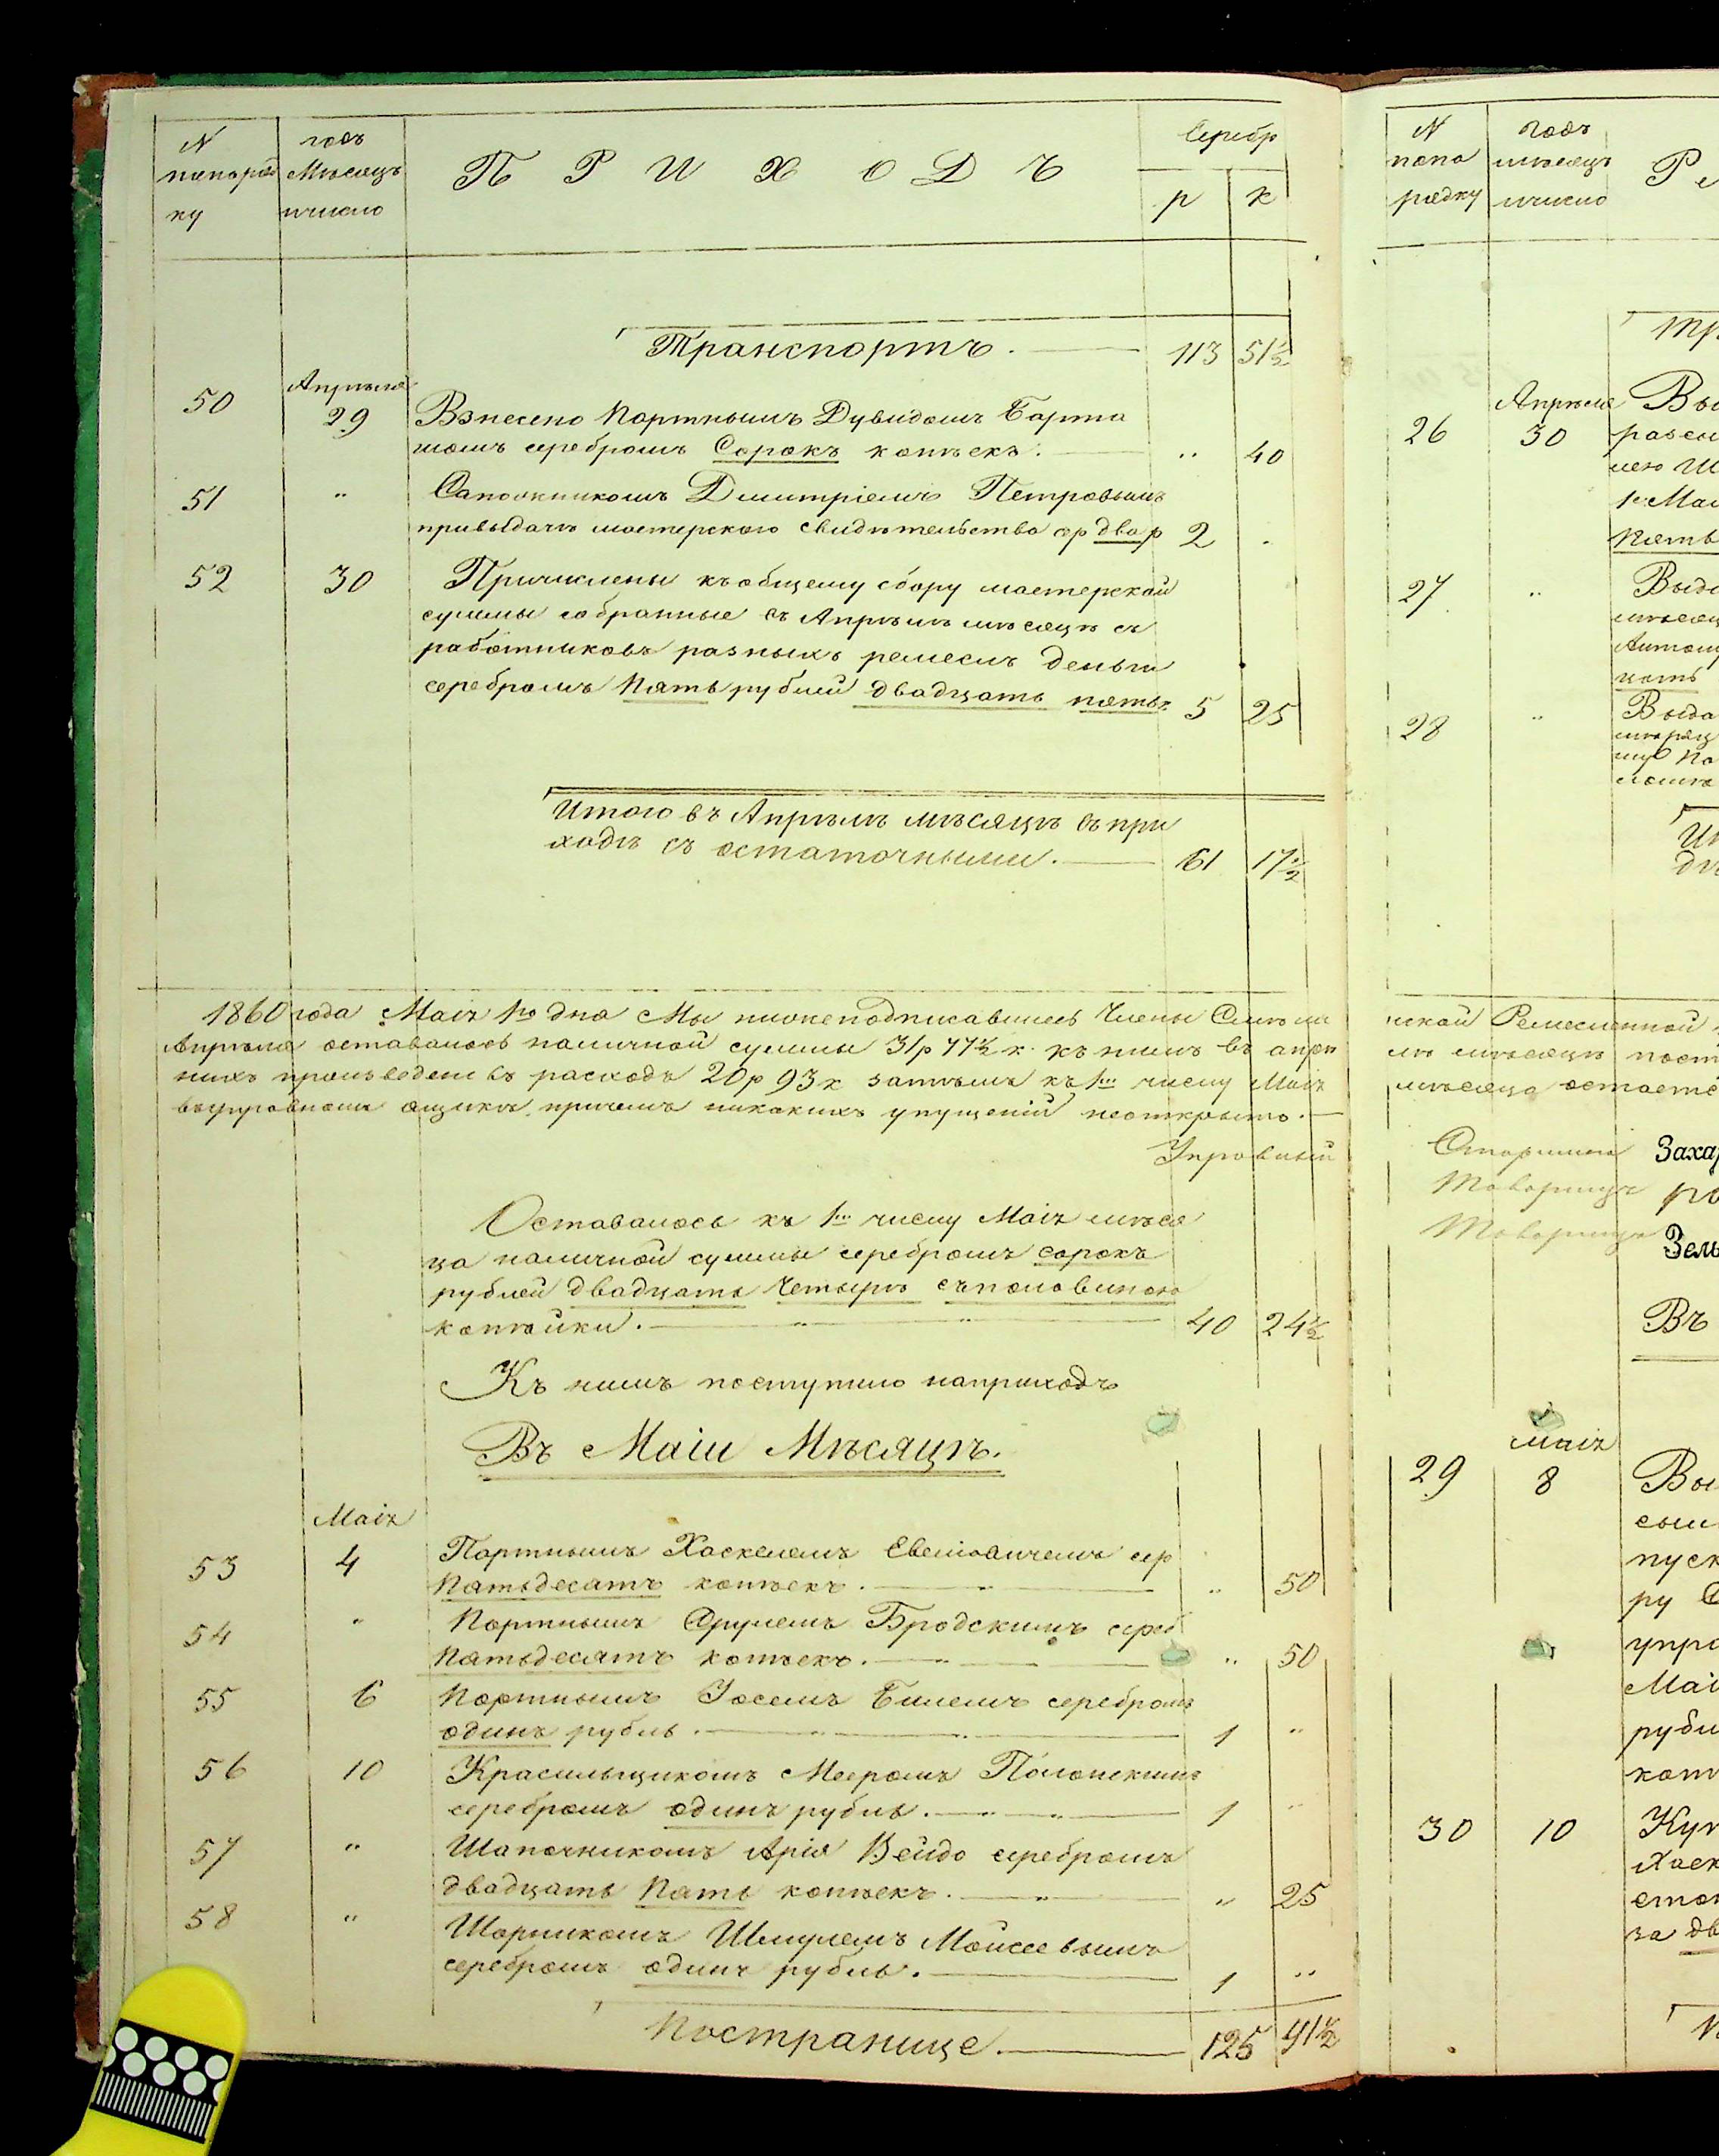 N
попоряд
ку
годъ
Мѣсяцъ
ичисло
ПРИХОДЪ
Серебр
р
к
Транспортъ. 113 51½
50 Апрѣля 29 Взнесено Портнымъ Дувидомъ Барта
шомъ серебромъ Сорокъ копѣекъ. „ 40
51 „ Сапожникомъ Дмитріемъ Петровымъ
привыдачѣ мастерскаго свидѣтельства ср два р 2 .
52 30 Причислены къ общему сбору мастерской
суммы собранные въ Апрѣлѣ мѣсяцѣ съ
работниковъ разныхъ ремеслъ деньги
серебромъ Пять рублей двадцать пять. 5 25
Итого въ Апрѣлѣ мѣсяцѣ въ при
ходѣ съ остаточными. 61 17½
1860 года Маія 1го дня Мы нижеподписавшіесь Члены
Апрѣля оставалось наличной суммы 31р 77½ к. къ нимъ въ апрѣ
нихъ произведено въ расходъ 20р 93к затѣмъ къ 1му числу Маія
вауправномъ ящикѣ, причемъ никакихъ упущеній неоткрыто.
Управный
Оставалось къ 1му числу Маія мѣся
ца наличной суммы серебромъ сорокъ
рублей двадцать Четырѣ съполовиною
копѣйки. 40 24½
Къ нимъ поступило наприходъ
Въ Маіи Мѣсяцѣ.
Маія
53 4 Портнымъ Хаскелемъ сер
Пятьдесятъ копѣекъ. „ 50
54 „ Портнымъ Срулемъ Бродскимъ сереб
Пятьдесятъ копѣекъ. „ 50
55 6 Портнымъ Іосемъ Билемъ серебромъ
одинъ рубль. 1 „
56 10 Красильщикомъ Мееромъ Полонскимъ
серебромъ одинъ рубль. 1 „
57 „ Шапочникомъ Арія Вейдо серебромъ
двадцать Пять копѣекъ. „ 25
58 „ Шорникомъ Шмулемъ Моисеевымъ
серебромъ одинъ рубль. 1 „
Постранице. 125 41½
N
попо
рядку
годъ
мѣсяцъ
ичисло
Ра
Тр
26 Апрѣля 30 Вы
разсы
лею Ш
1е Маі
Пять
27 „ Выда
мѣсяц
Антону
28 „ Выда
Ит
ской Ремесленной
лѣ мѣсяцѣ пост
мѣсяца остаетс
Старшина Заха
Товарищъ
Товарищъ Зель
Въ
Маія
29 8 Вы
сыл
пуск
ру С
упра
Маі
рубл
коп
30 10 Куп
Хаск
стол
за дв